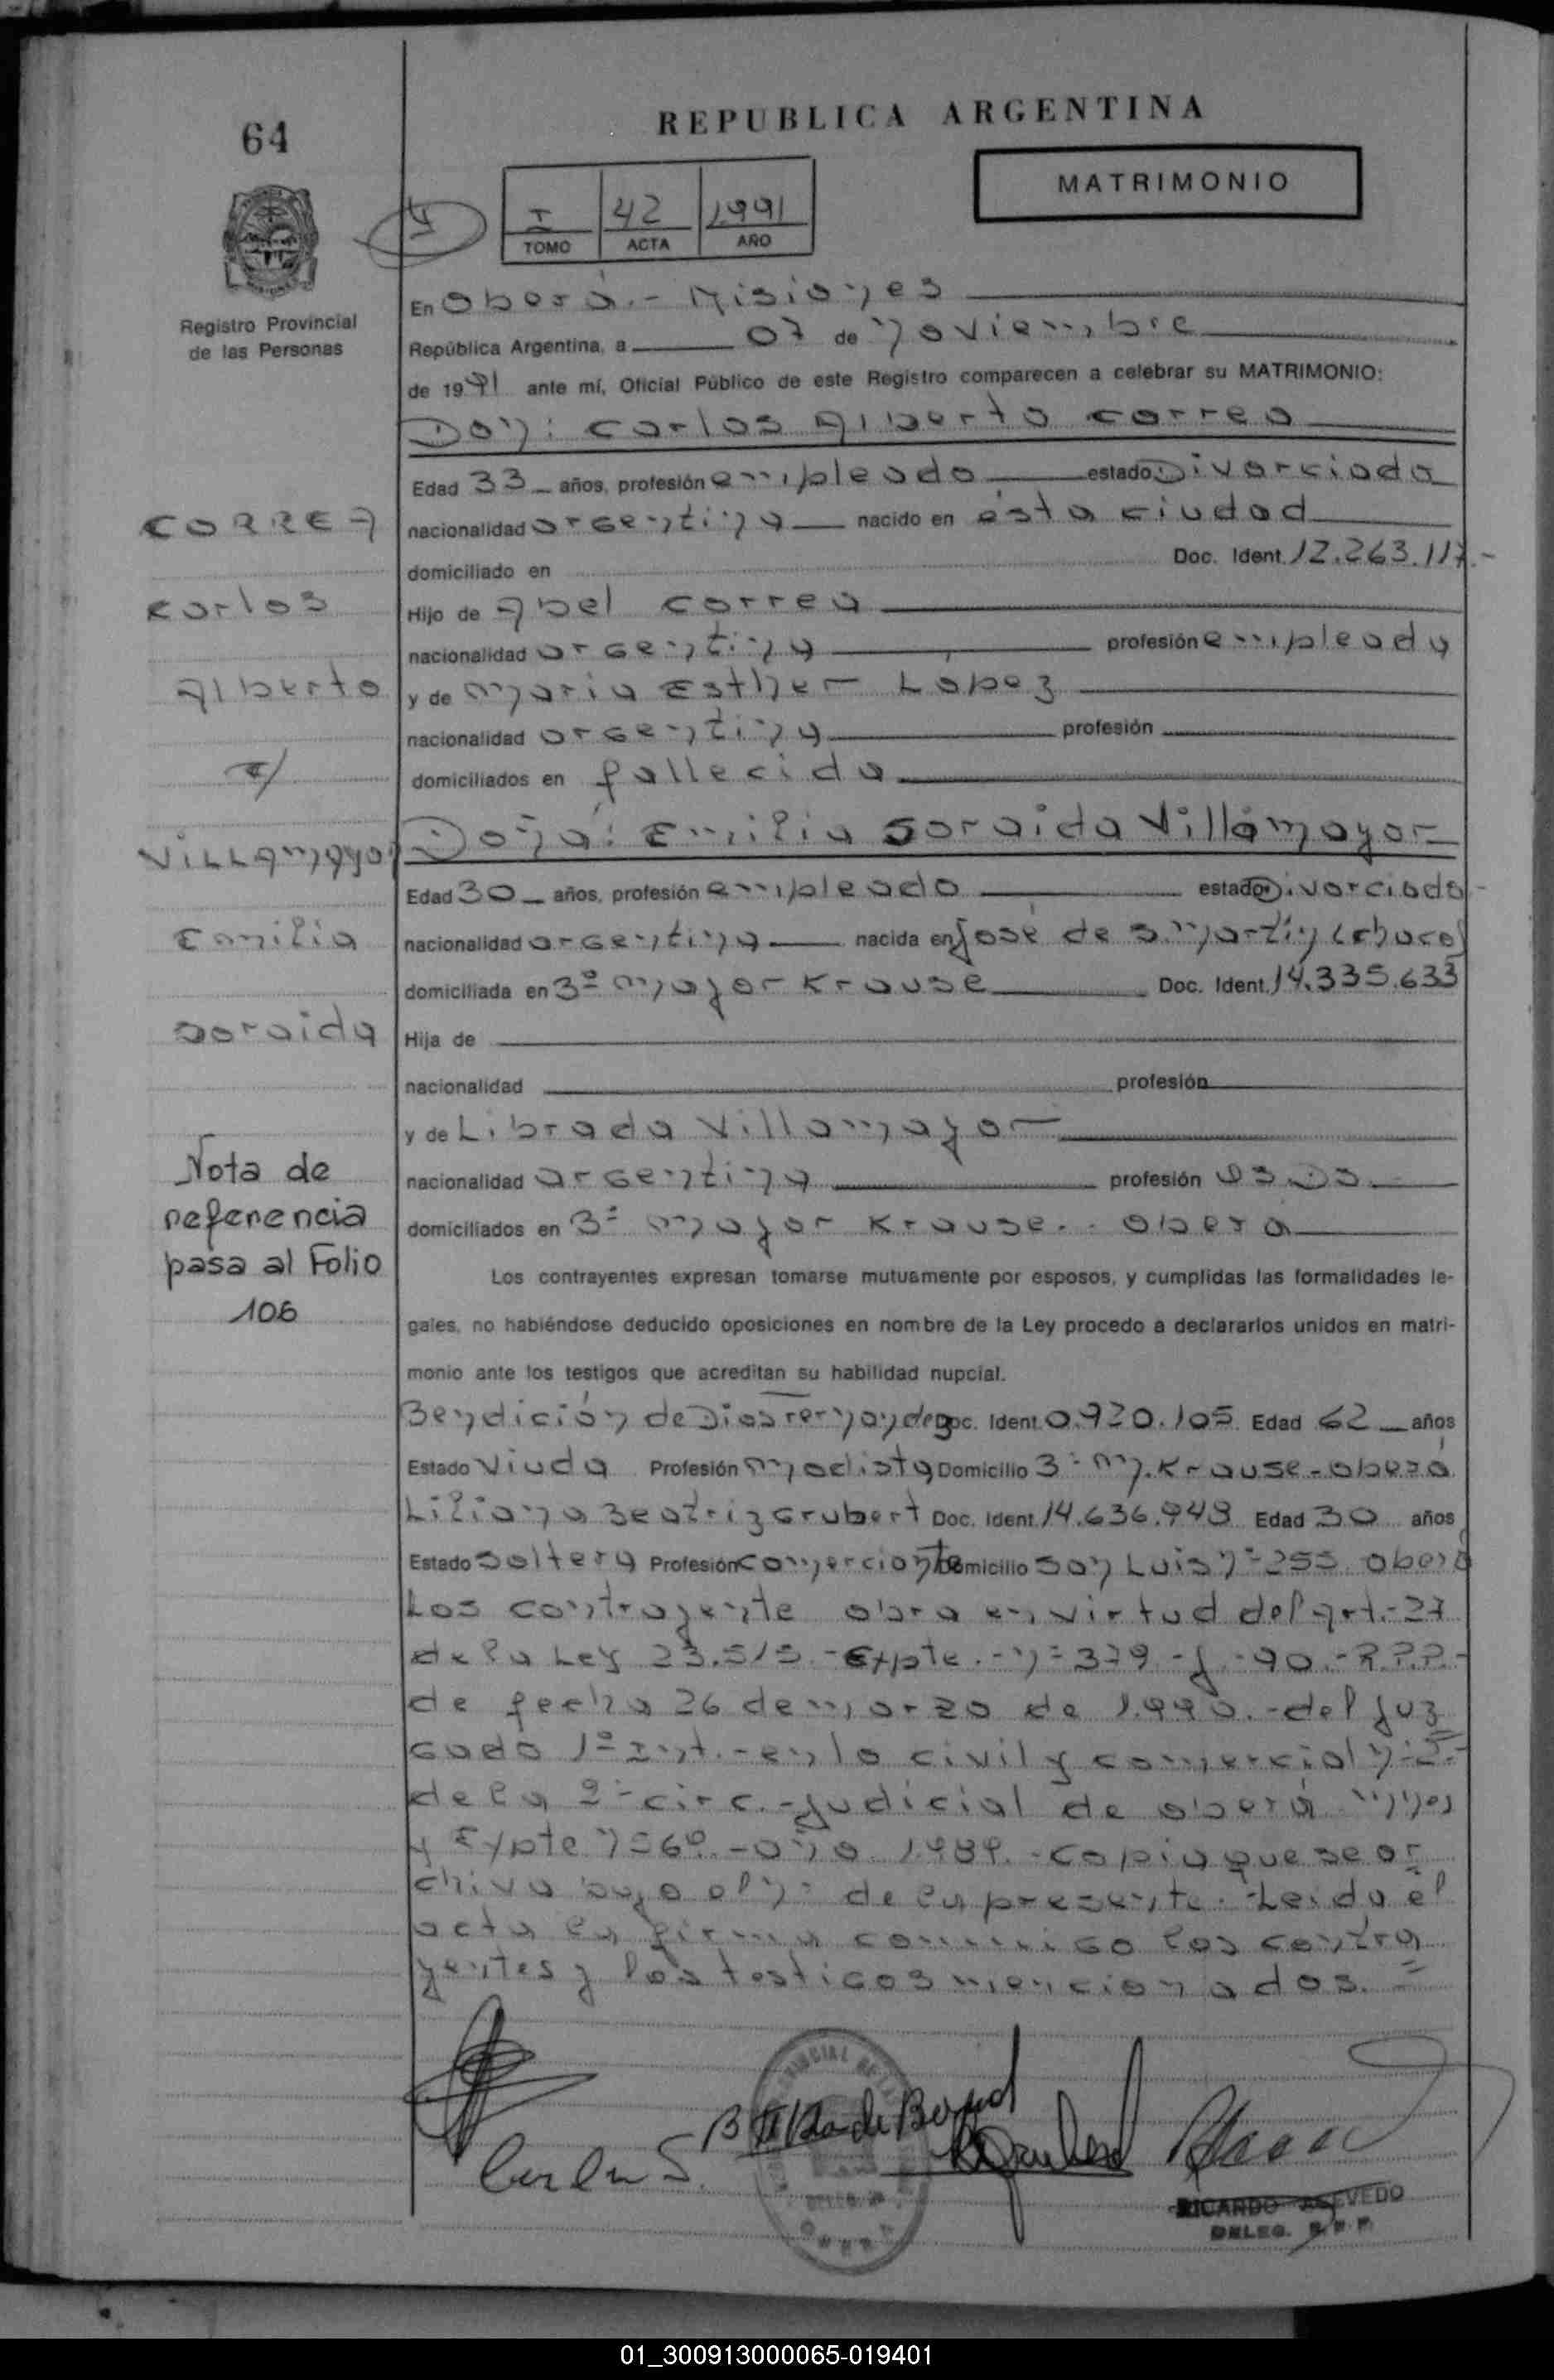 64
REPUBLICA ARGENTINA
MATRIMONIO
I 42 1991
TOMO ACTA AÑO
Registro Provincial
de las Personas
En Oberá.- Misiones
República Argentina, a 07 de Noviembre
de 1991 ante mí, Oficial Público de este Registro comparecen a celebrar su MATRIMONIO:
Don: Carlos Alberto Correa
Edad 33 años, profesión empleado estado Divorciado
nacionalidad argentina nacido en ésta ciudad
domiciliado en Doc. Ident. 12.263.117.-
Hijo de Abel Correa
nacionalidad argentina profesión empleado
y de Maria Esther Lopez
nacionalidad argentina profesión
domiciliados en fallecida
Doña: Emilia Soraida Villamayor
Edad 30 años, profesión empleada estado Divorciada-
nacionalidad argentina nacida en José de S. Martin (Chaco)
domiciliada en 3º Mayor Krause Doc. Ident. 14.335.633
Hija de
nacionalidad profesión
y de Librada Villamayor
nacionalidad argentina profesión
domiciliados en 3º Mayor Krause.- Oberá
CORREA
Carlos
Alberto
c/
VILLAMAYOR
Emilia
Soraida
Nota de
referencia
pasa al Folio
106
Los contrayentes expresan tomarse mutuamente por esposos, y cumplidas las formalidades le-
gales, no habiéndose deducido oposiciones en nombre de la Ley procedo a declararlos unidos en matri-
monio ante los testigos que acreditan su habilidad nupcial.
Bendición de Dios Fernandez Doc. Ident. 0.920.105 Edad 62 años
Estado Viuda Profesión Modista Domicilio 3º M. Krause-Oberá
Liliana Beatriz Grubert Doc. Ident. 14.636.948 Edad 30 años
Estado Soltera Profesión Comerciante Domicilio San Luis Nº 255 Oberá
Los contrayente obra en virtud del Art.-27
de la Ley 23.515.-Expte.-Nº 379-J-90.-
de fecha 26 de marzo de 1.990.-del Juz
gado 1º Inst.-en lo civil y comercial Nº 2.-
de la 2º circ.-Judicial de Oberá Mnes
y Expte Nº 69.-año 1989.-copia que se ar
chiva bajo el Nº de la presente.-Leida el
acta la firman conmigo los contra
yentes y los testigos mencionados.=
RICARDO ACEVEDO
DELEG. R.P.P.
01_300913000065-019401